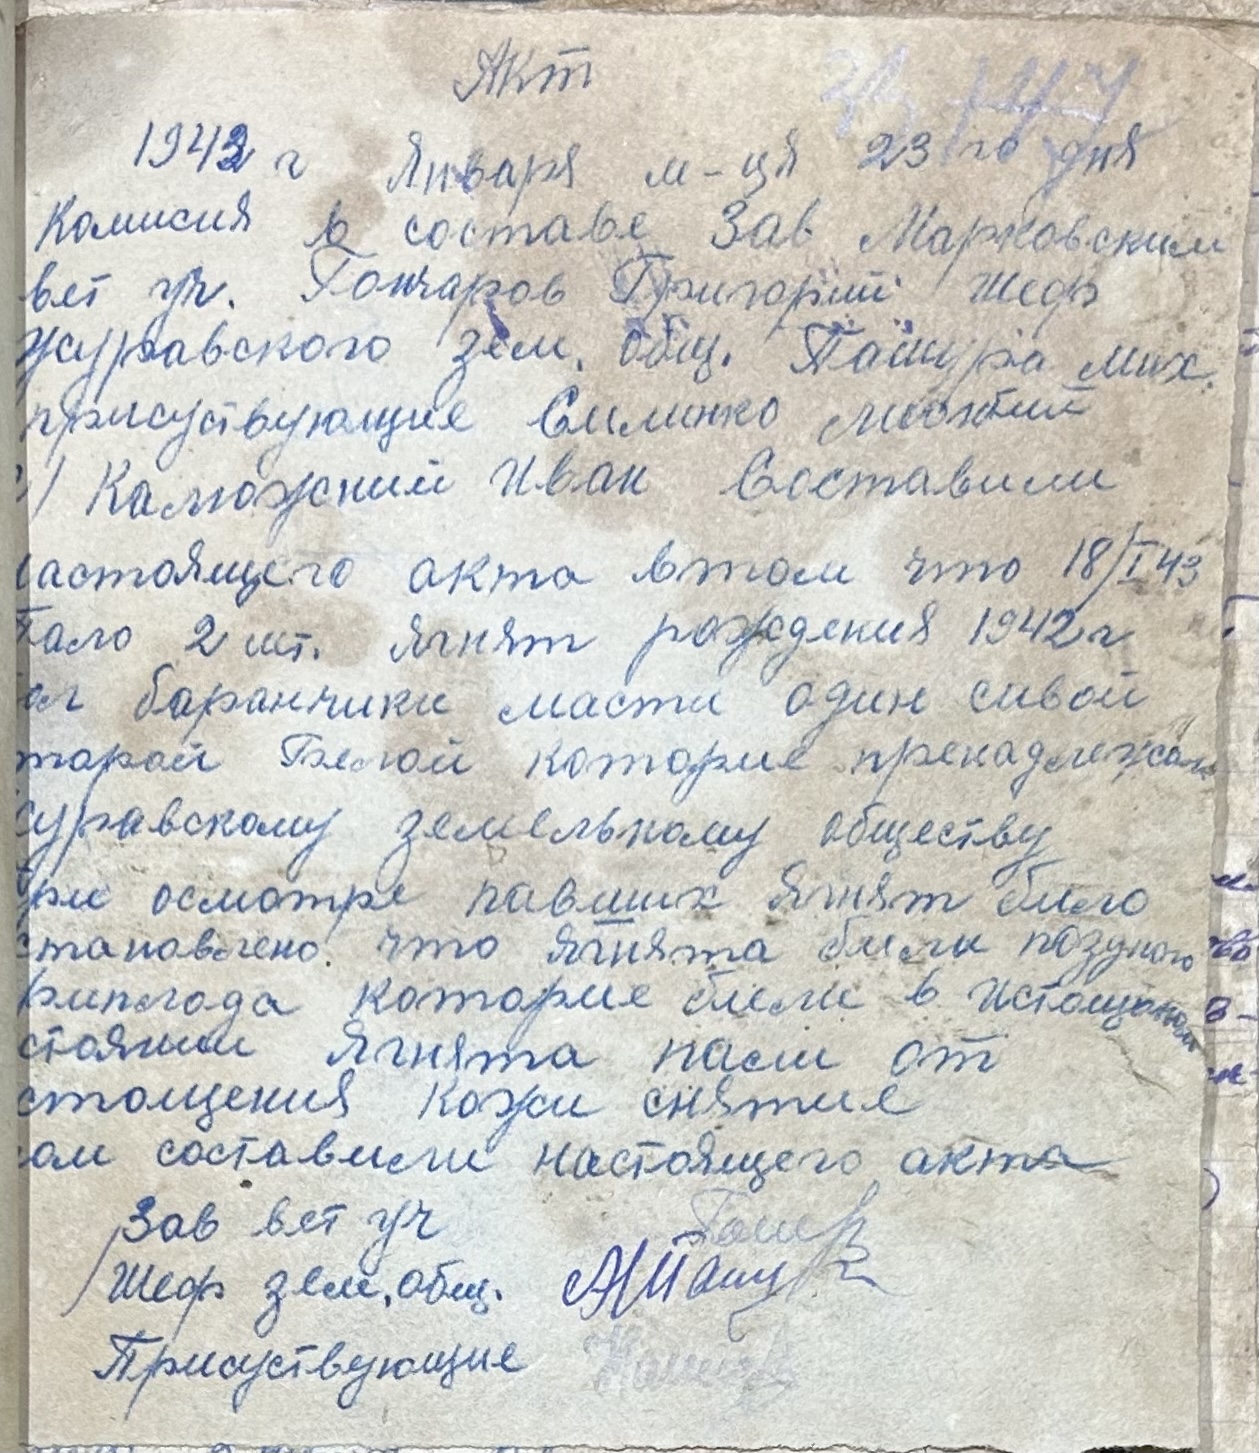 Акт
1943 г Января м-ця 23 го дня
Комисия в составе Зав Марковским
вет уч. Гончаров Григорий Шеф
журавского зем. общ. Пашура Мих.
присуствующие Симинко
Калюжний Иван Составили
настоящего акта втом что 18/I 43
пало 2 шт. ягнят рождения 1942 г
баранчики масти один сивой
торой Белой которие пренадлежали
журавскому земельному обществу
При осмотре павших ягнят било
становлено что ягнята били поздного
риплода которие били в истощеном
стоянии ягнята пали от
стощения Кожи снятие
ом составили настоящего акта
Зав вет уч
Шеф зем. общ.
Присуствующие